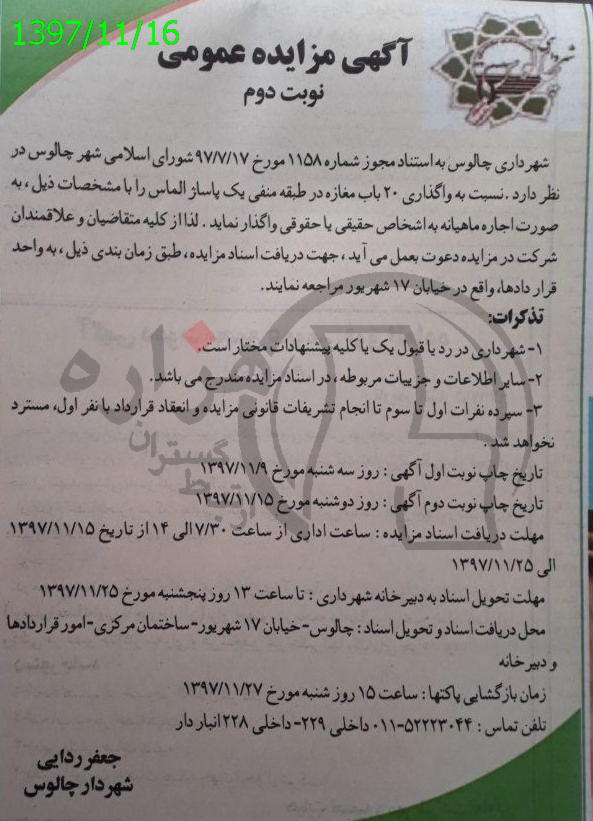 1397/11/16
آگهی مزایده عمومی
نوبت دوم
شهرداری چالوس به استناد مجوز شماره ۱۱۵۸ مورخ ۹۷/۷/۱۷ شورای اسلامی شهر چالوس در
نظر دارد . نسبت به واگذاری ۲۰ باب مغازه در طبقه منفی یک پاساژ الماس را با مشخصات ذیل ، به
صورت اجاره ماهیانه به اشخاص حقیقی یا حقوقی واگذار نماید . لذا از کلیه متقاضیان و علاقمندان
شرکت در مزایده دعوت بعمل می آید ، جهت دریافت اسناد مزایده ، طبق زمان بندی ذیل ، به واحد
قرار دادها، واقع در خیابان ۱۷ شهریور مراجعه نمایند.
تذکرات:
۱- شهرداری در رد یا قبول یک یا کلیه پیشنهادات مختار است.
۲- سایر اطلاعات و جزییات مربوطه ، در اسناد مزایده مندرج می باشد.
۳- سپرده نفرات اول تا سوم تا انجام تشریفات قانونی مزایده و انعقاد قرارداد با نفر اول، مسترد
نخواهد شد .
تاریخ چاپ نوبت اول آگهی : روز سه شنبه مورخ ۱۳۹۷/۱۱/۹
تاریخ چاپ نوبت دوم آگهی : روز دوشنبه مورخ ۱۳۹۷/۱۱/۱۵
مهلت دریافت اسناد مزایده : ساعت اداری از ساعت ۷/۳۰ الی ۱۴ از تاریخ ۱۳۹۷/۱۱/۱۵
الی ۱۳۹۷/۱۱/۲۵
مهلت تحویل اسناد به دبیرخانه شهرداری : تا ساعت ۱۳ روز پنجشنبه مورخ ۱۳۹۷/۱۱/۲۵
محل دریافت اسناد و تحویل اسناد : چالوس-خیابان ۱۷ شهریور-ساختمان مرکزی-امور قراردادها
و دبیرخانه
زمان بازگشایی پاکتها : ساعت ۱۵ روز شنبه مورخ ۱۳۹۷/۱۱/۲۷
تلفن تماس : ۵۲۲۲۳۰۴۴-۰۱۱ داخلی ۲۲۹- داخلی ۲۲۸ انبار دار
جعفر ردایی
شهردار چالوس
هزاره
گستران